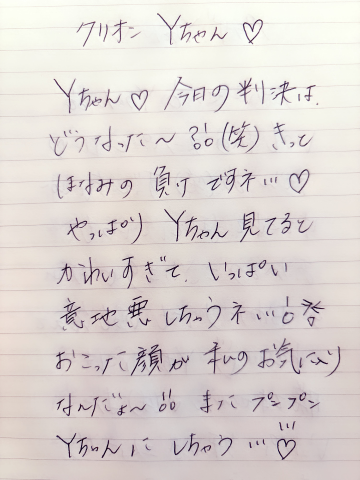 クリオン Yちゃん♡
Yちゃん♡ 今日の判決は、
どうなった〜?!(笑)きっと
ほなみの 負け ですネ…♡
やっぱり Yちゃん 見てると
かわいすぎて、いっぱい
意地悪 しちゃうネ…!
おこった 顔が 私の お気に入り
なんだょ〜!! また プンプン
Yちゃんに しちゃう…♡